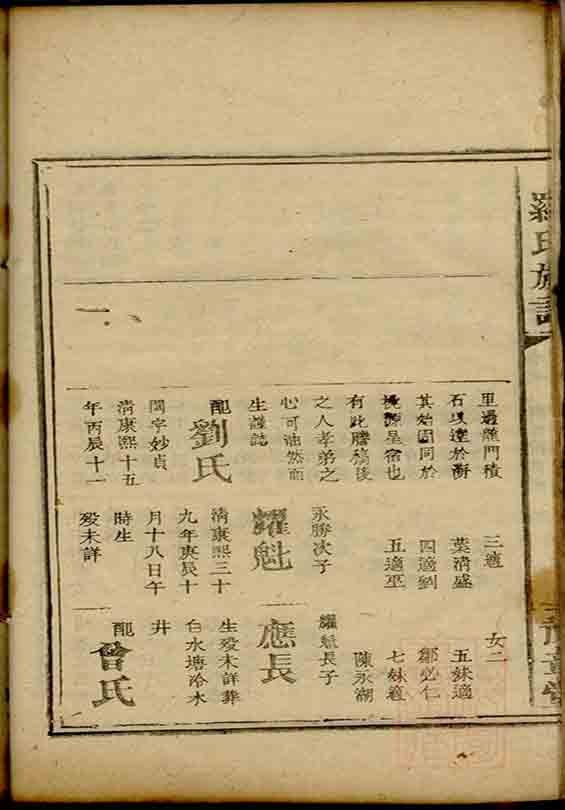 羅氏族譜
豫章堂
里過龍門積
石以達於海
其始固同於
星宿也
有此謄稿後
之人孝弟之
心可油然而
生謹誌
配劉氏
閨字妙貞
清康熙十五
年丙辰十一
三適
葉清盛
四適劉
五適巫
永勝次子
耀魁
清康熙三十
九年庚辰十
月十八日午
時生
歿未詳
女二
五妹適
鄒必仁
七妹適
陳永湖
耀魁長子
應長
生歿未詳葬
白水塘冷水
井
配曾氏